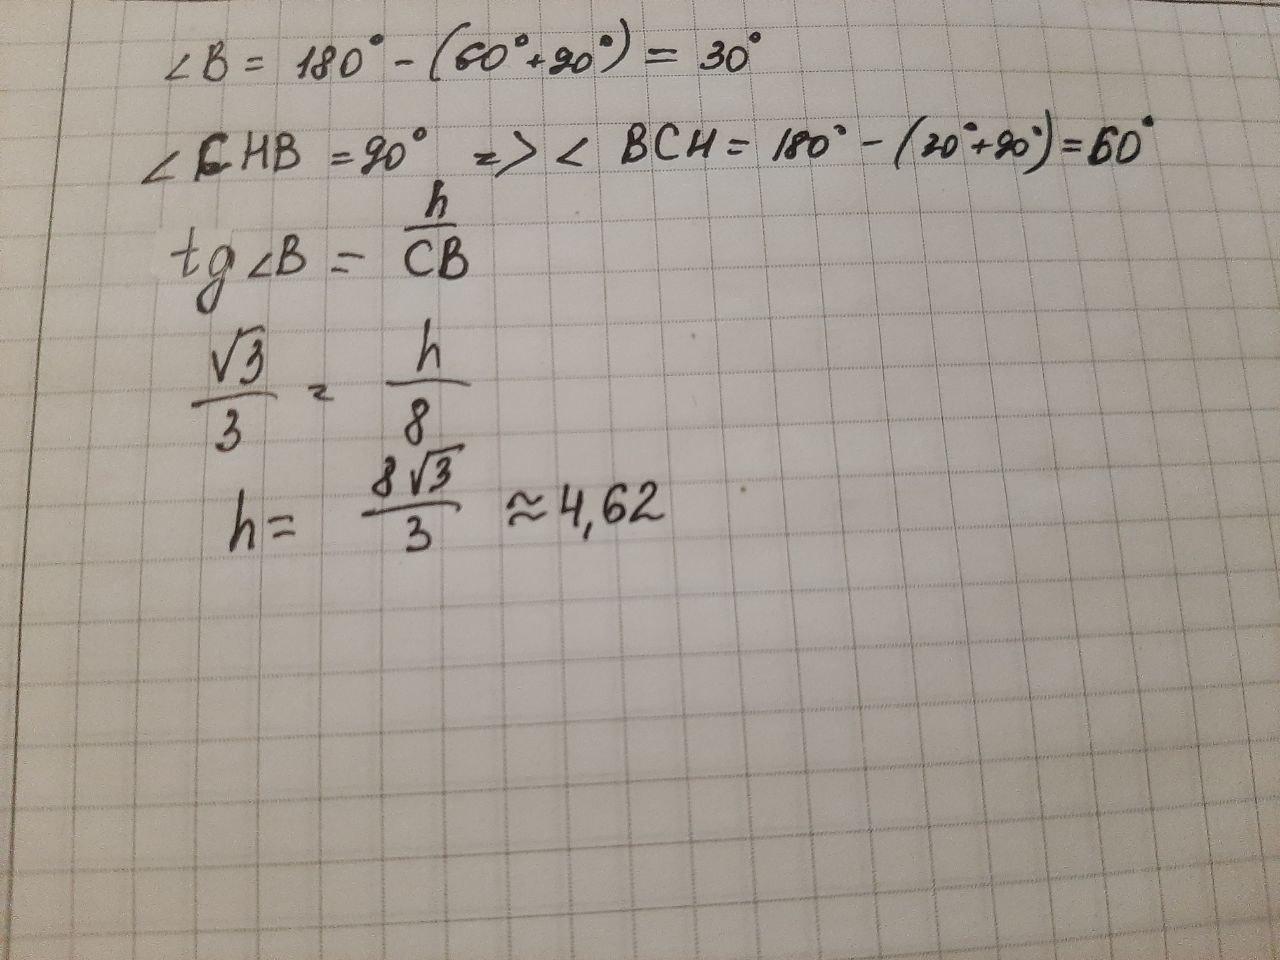 ∠B = 180° - (60° + 90°) = 30°
∠CHB = 90° => < BCH = 180° - (30° + 90°) = 60°
tg ∠B = h/CB
√3/3 = h/8
h = 8√3/3 ≈ 4,62